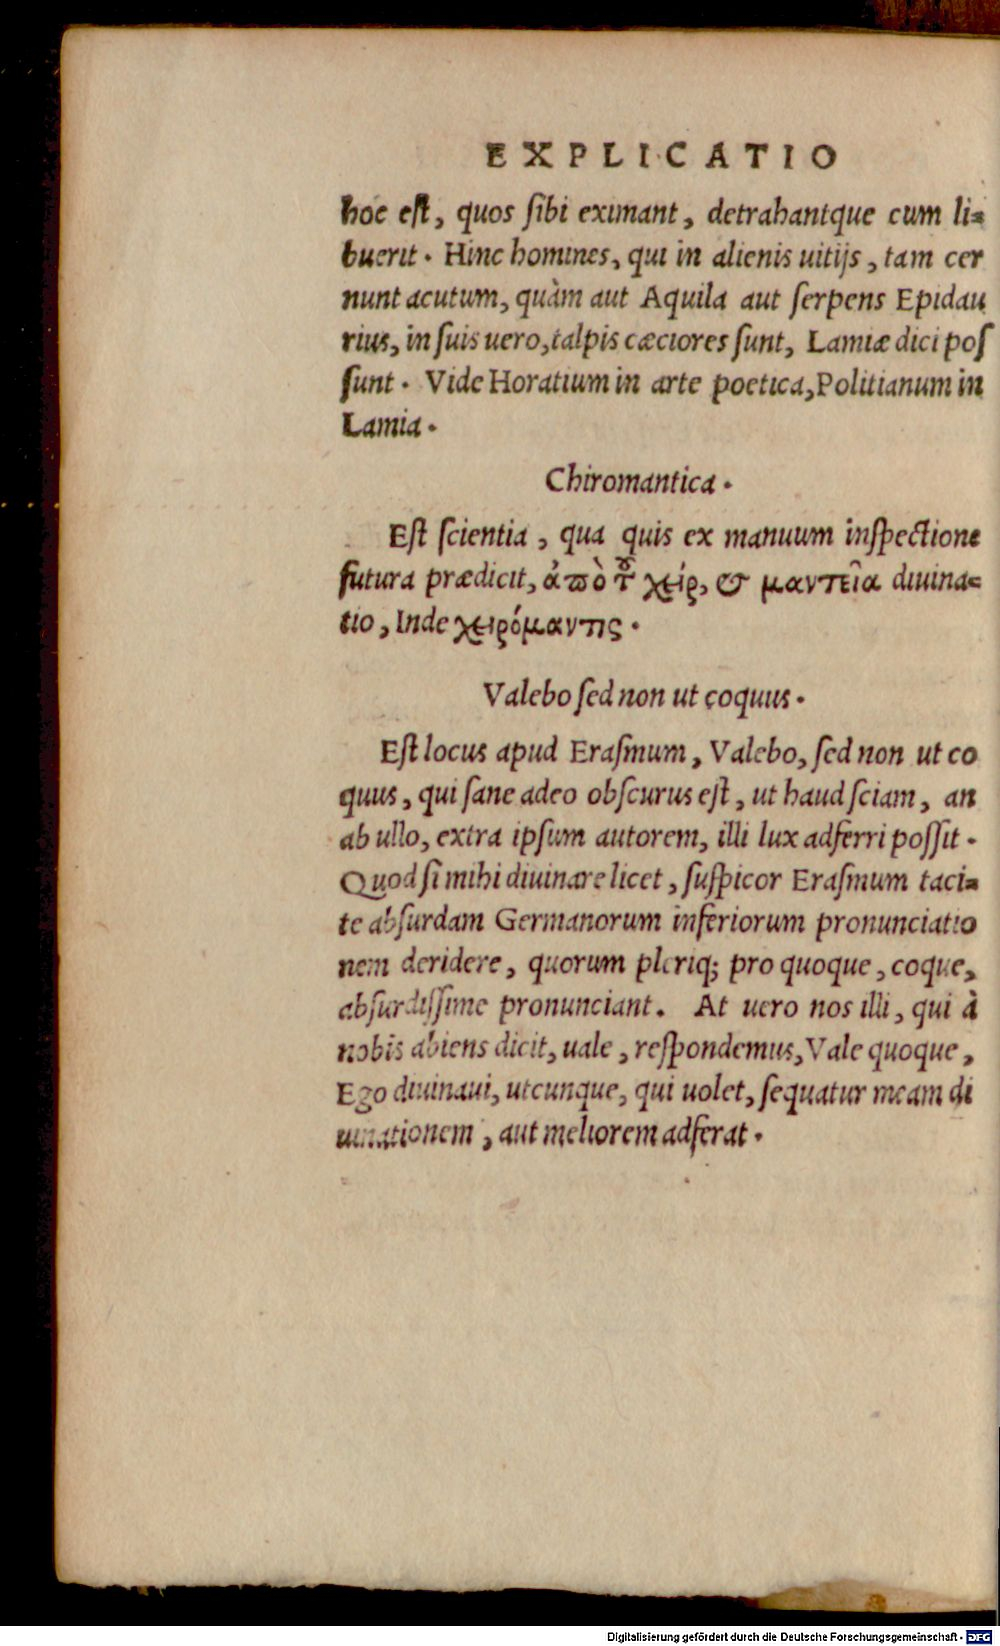 EXPLICATIO
hoc eſt, quos ſibi eximant, detrahantque cum li-
buerit. Hinc homines, qui in alienis uitijs, tam cer
nunt acutum, quàm aut Aquila aut ſerpens Epidau
rius, in ſuis uero, talpis cæciores ſunt, Lamiæ dici poſ
ſunt. Vide Horatium in arte poetica, Politianum in
Lamia.
Chiromantica.
Eſt ſcientia, qua quis ex manuum inſpectione
futura prædicit, ἀπὸ τοῦ χείρ, & μαντεῖα diuina-
tio, Inde χειρόμαντις.
Valebo ſed non ut coquus.
Eſt locus apud Eraſmum, Valebo, ſed non ut co
quus, qui ſane adeo obſcurus eſt, ut haud ſciam, an
ab ullo, extra ipſum autorem, illi lux adferri poſſit.
Quod ſi mihi diuinare licet, ſuſpicor Eraſmum taci-
te abſurdam Germanorum inferiorum pronunciatio
nem deridere, quorum pleriq; pro quoque, coque,
abſurdiſſime pronunciant. At uero nos illi, qui à
nobis abiens dicit, uale, reſpondemus, Vale quoque,
Ego diuinaui, utcunque, qui uolet, ſequatur meam di
uinationem, aut meliorem adferat.
Digitalisierung gefördert durch die Deutsche Forschungsgemeinschaft - DFG